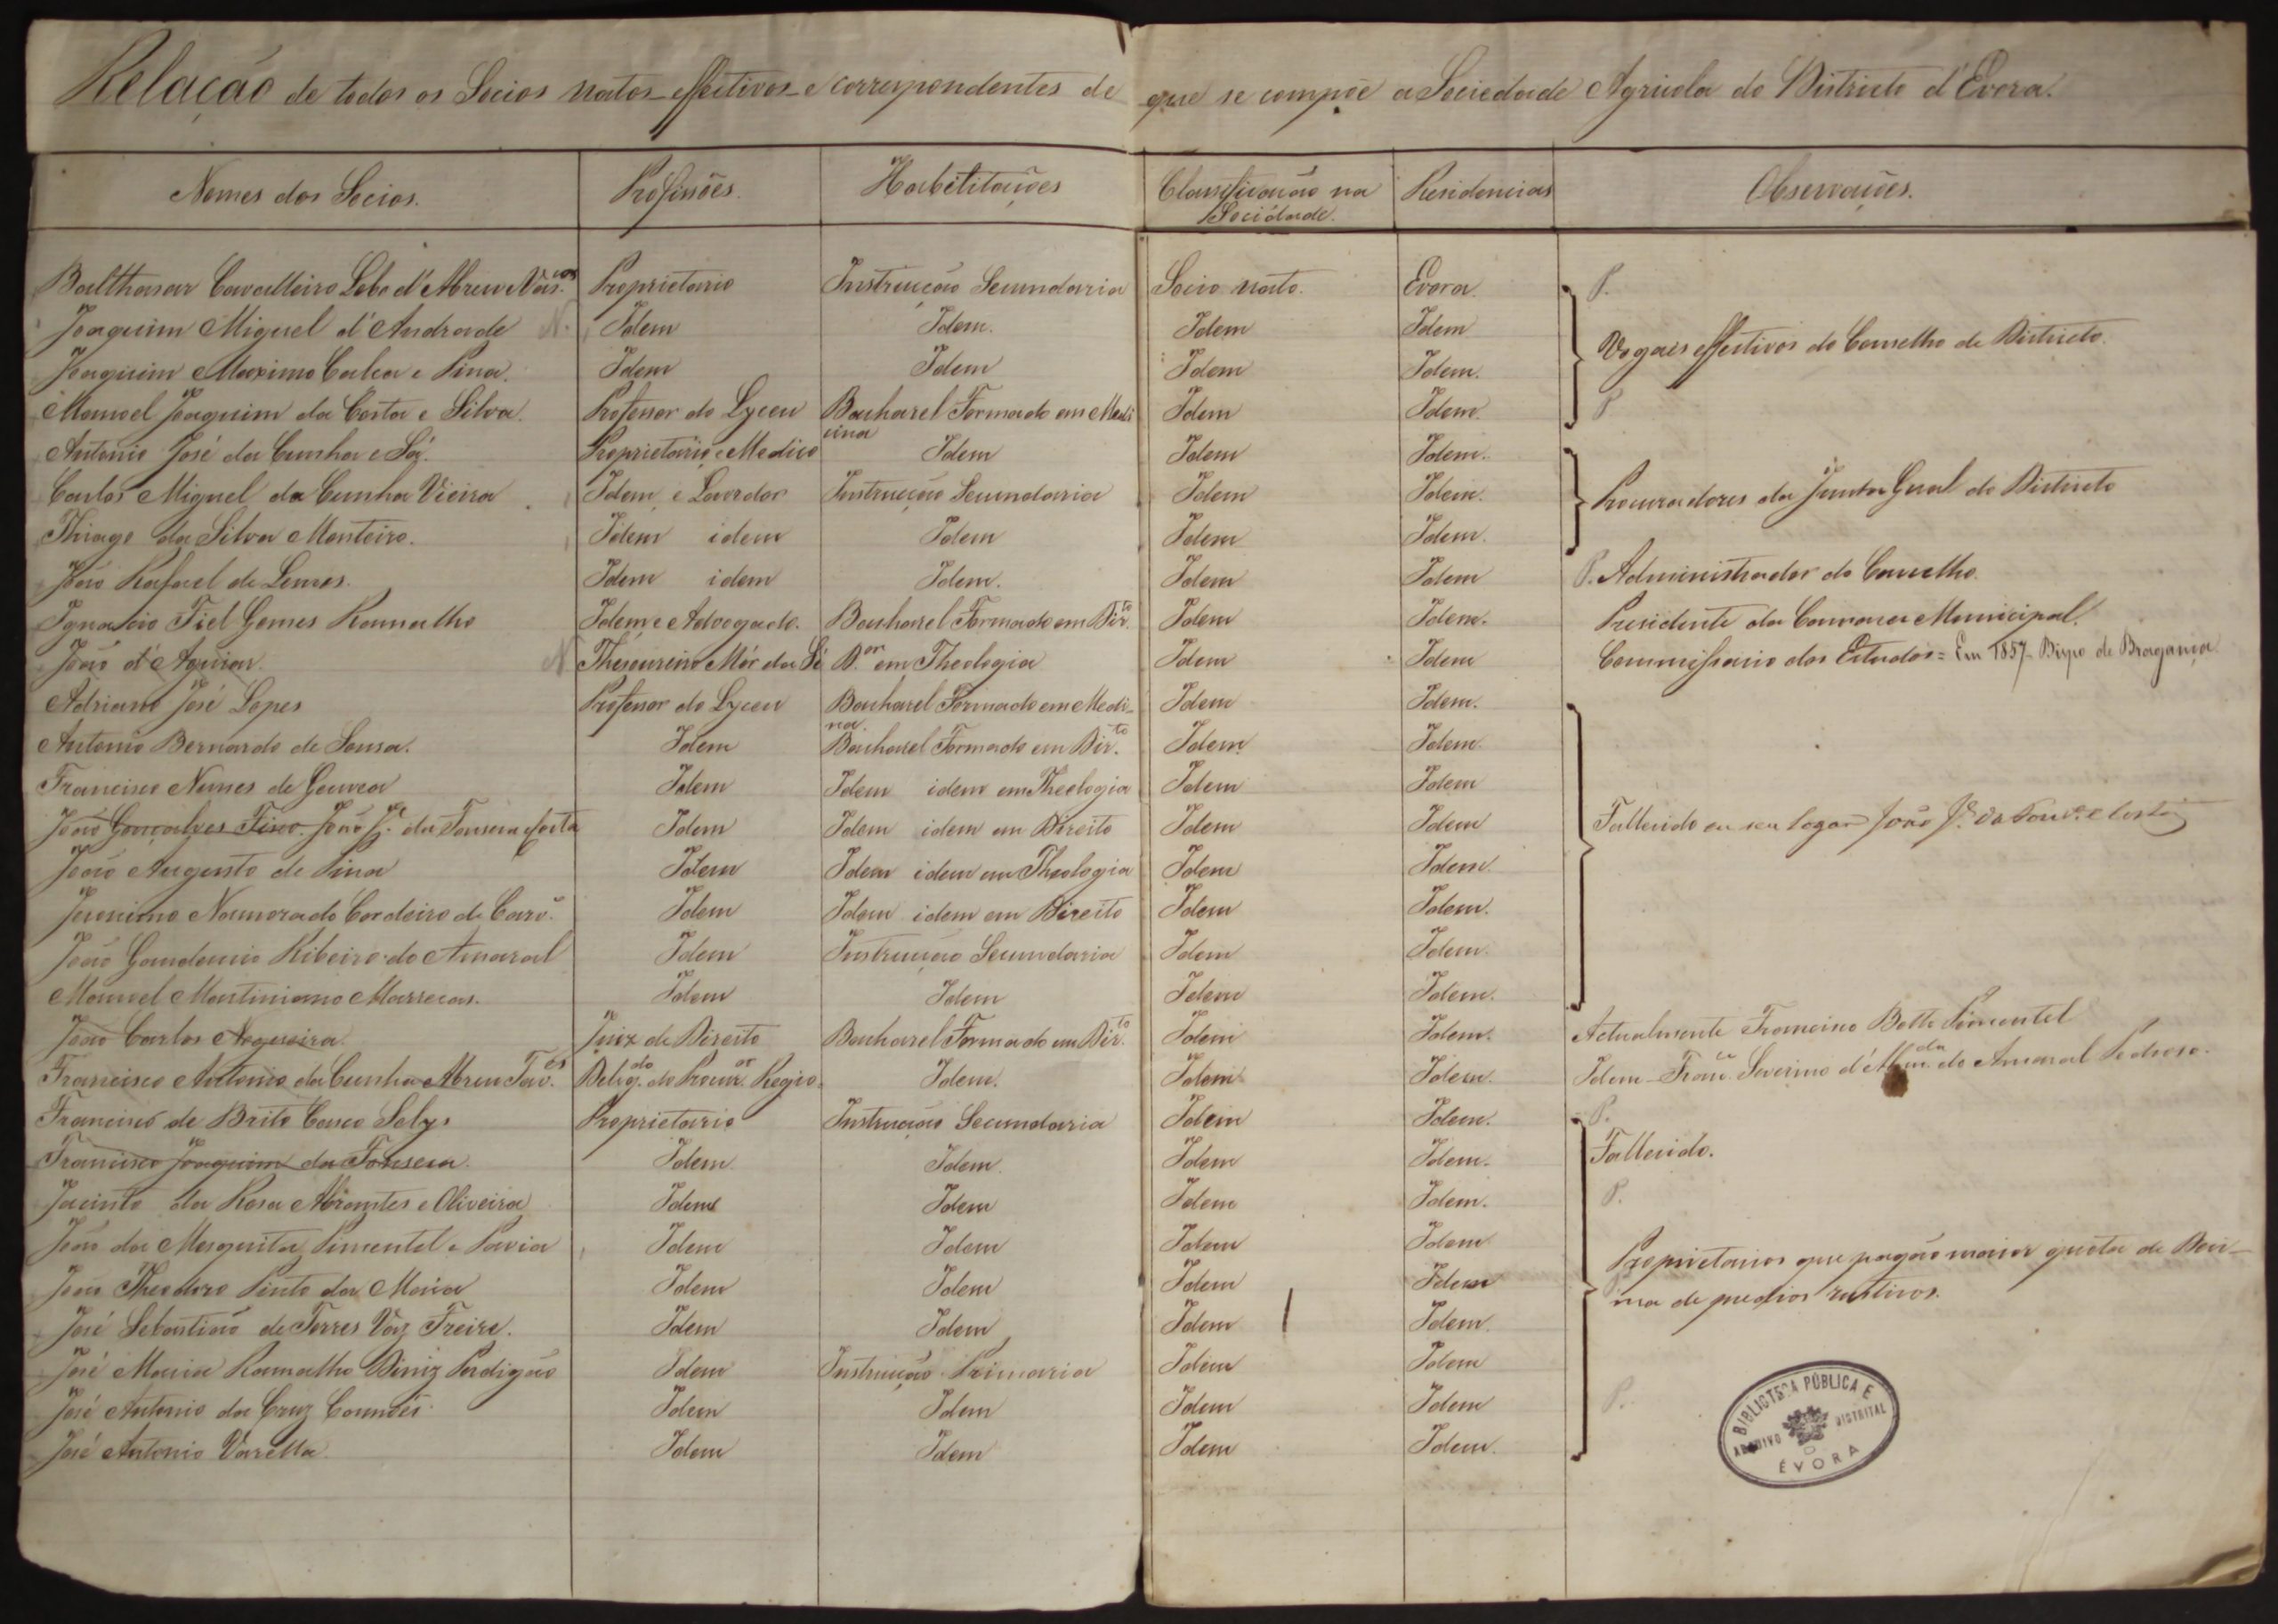 Relação de todos os Socios natos effectivos e correspondentes de que se compoe a Sociedade Agricola do Districto d'Evora.
Nomes dos Socios. Profissões. Habelitações Classificação na Residencias Observações.
Sociedade.
Balthasar Cavalleiro Lobo d'Abreu e Vas.cos Proprietario Instrucção Secundaria Socio nato. Evora. P.
Joaquim Miguel d'Andrade N. Idem Idem. Idem Idem
Vogaes effectivos do Conselho de Districto.
Joaquim Maximo Calca e Pina. Idem Idem Idem Idem.
Manoel Joaquim da Costa e Silva. Professor do Lyceu Bacharel Formado em Medi Idem Idem. P.
cina
Antonio José da Cunha e Sá. Proprietario e Medico Idem Idem Idem.
Carlos Miguel da Cunha Vieira Idem e Lavrador Instrucção Secundaria Idem Idem. Procuradores da Junta Geral do Districto
Thiago da Silva Monteiro. Idem idem Idem Idem Idem.
João Rafael de Lemos. Idem idem Idem. Idem Idem P. Administrador do Concelho.
Ignacio Fiel Gomes Ramalho Idem e Advogado. Bacharel Formado em Dir.to Idem Idem. Presidente da Camara Municipal.
João d'Aguiar. N Thesoureiro Mór da Sé D.or em Theologia Idem Idem Commissario dos Estudos = Em 1857 - Bispo de Bragança
Adriano José Lopes Professor do Lyceu Bacharel Formado em Medi- Idem Idem.
na.
Antonio Bernardo de Sousa. Idem Bacharel Formado em Dir.to Idem Idem.
Francisco Nunes de Gouvea Idem Idem idem em Theologia Idem Idem
João Gonçalves Fisco. João J.e da Fonseca Costa Idem Idem idem em Direito Idem Idem Fallecido em seu logar João J.e da Fon.ca e Costa
João Augusto de Pina Idem Idem idem em Theologia Idem Idem.
Jeronimo Namorado Cordeiro de Carv.o Idem Idem idem em Direito Idem Idem.
João Gaudencio Ribeiro do Amaral Idem Instrucção Secundaria Idem Idem.
Manoel Martiniano Marrecas. Idem Idem Idem Idem.
João Carlos Negueira. Juiz de Direito Bacharel Formado em Dir.to Idem Idem. Actualmente Francisco Botto Pimentel
Francisco Antonio da Cunha Abreu Tav.es Deleg.do do Procur.or Regio. Idem. Idem Idem. Idem - Fran.co Severino d'Alm.da do Amaral Pedroso.
Francisco de Brito Casco Solys Proprietario Instrucção Secundaria Idem Idem. P.
Francisco Joaquim da Fonseca. Idem Idem. Idem Idem. Fallecido.
Jacinto da Rosa Abrantes e Oliveira Idem Idem Idem Idem. P.
João da Mesquita Pimentel e Pavia Idem Idem Idem Idem
Proprietarios que pagão maior quota de Deci-
João Theodoro Pinto da Maia Idem Idem Idem Idem
ma de predios rusticos.
José Sebastião de Torres Váz Freire. Idem Idem Idem Idem.
José Maria Ramalho Diniz Perdigão Idem Instrucção Primaria Idem Idem
José Antonio da Cruz Camões Idem Idem Idem Idem P.
José Antonio Varella. Idem Idem Idem Idem.
BIBLIOTECA PÚBLICA E
ARQUIVO DISTRITAL
D
ÉVORA